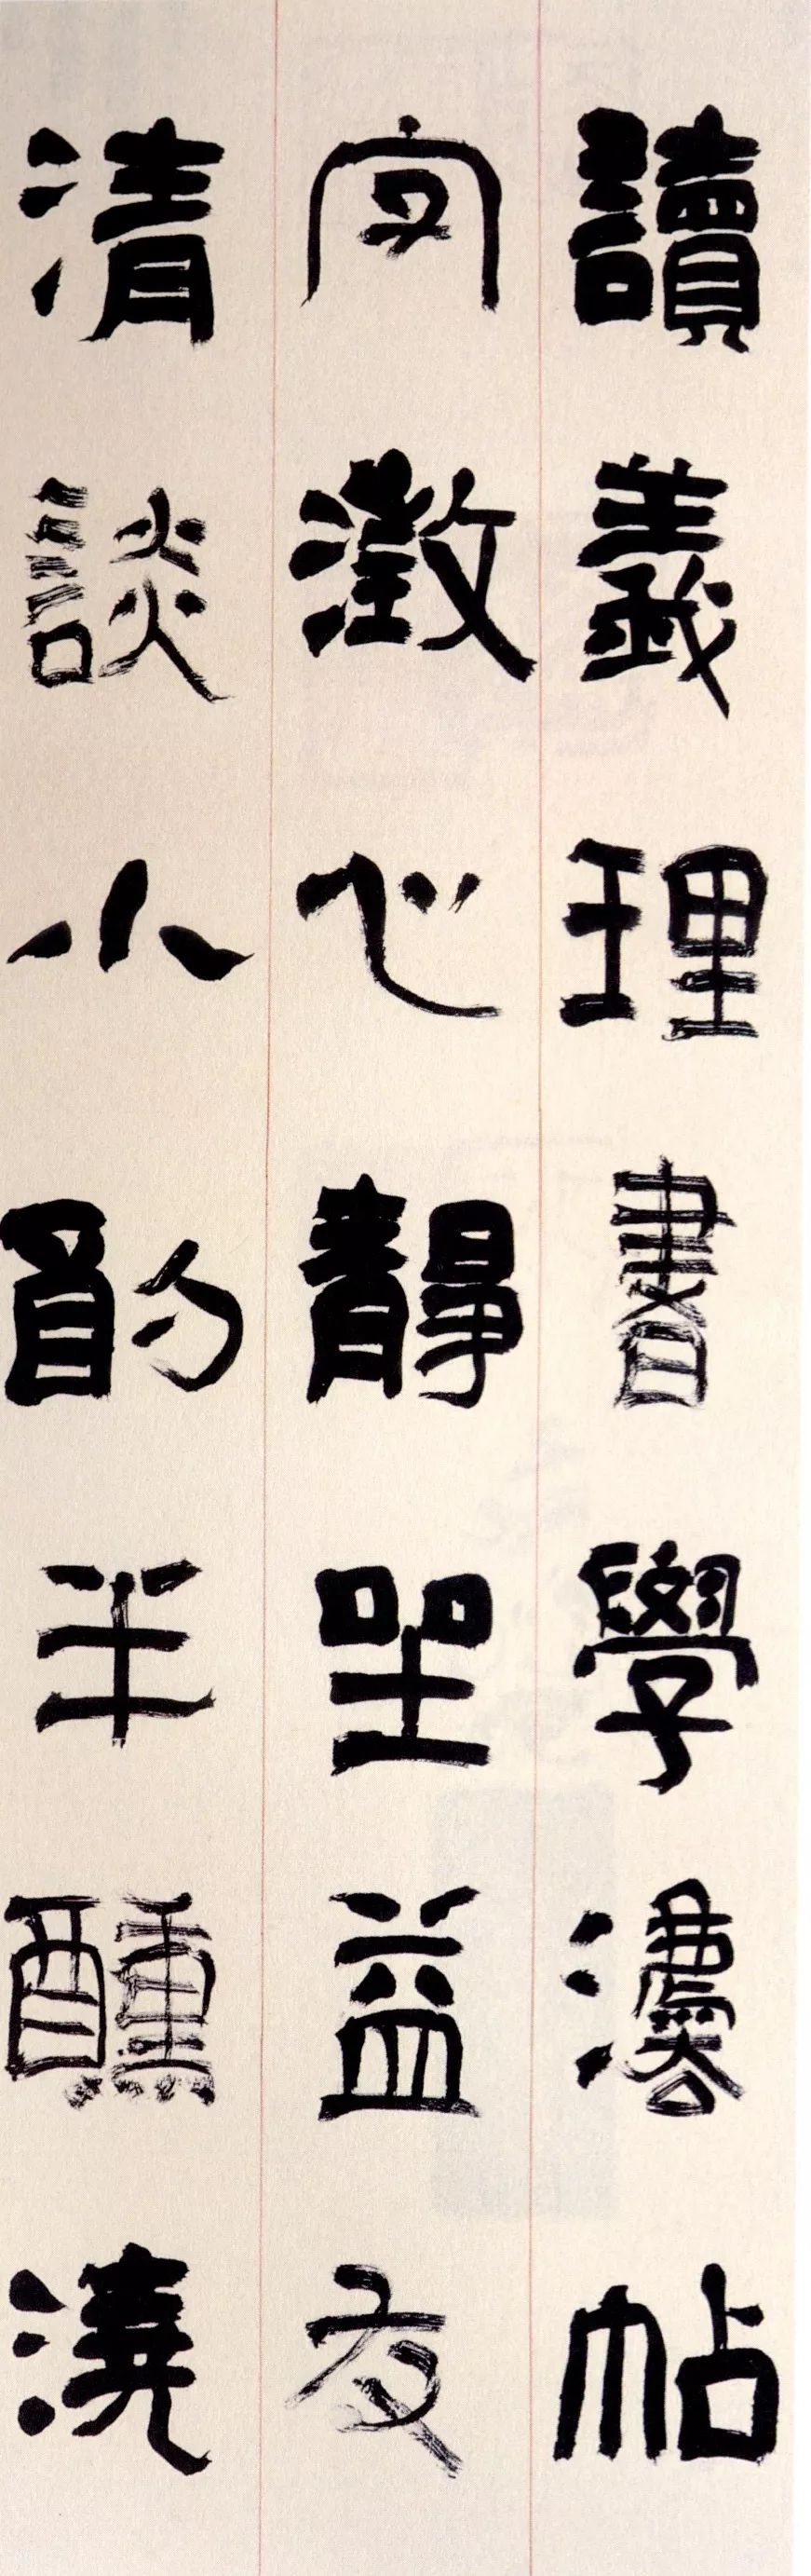 讀義理書學灋帖
字澂心靜坐益友
清談小酌半醺澆